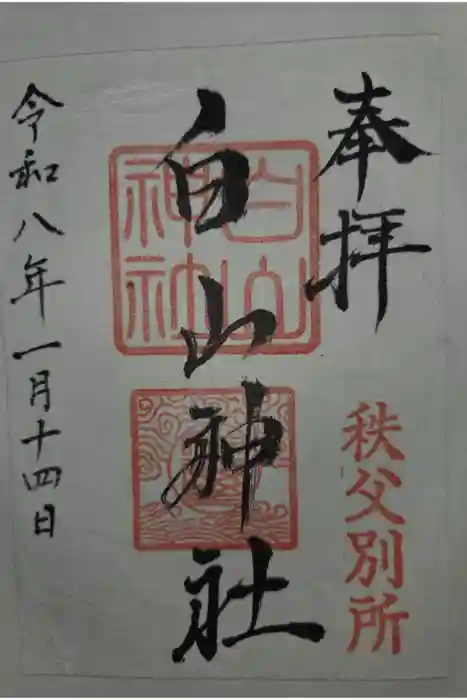 奉拝
秩父別所
白山神社
白山
神社
令和八年一月十四日